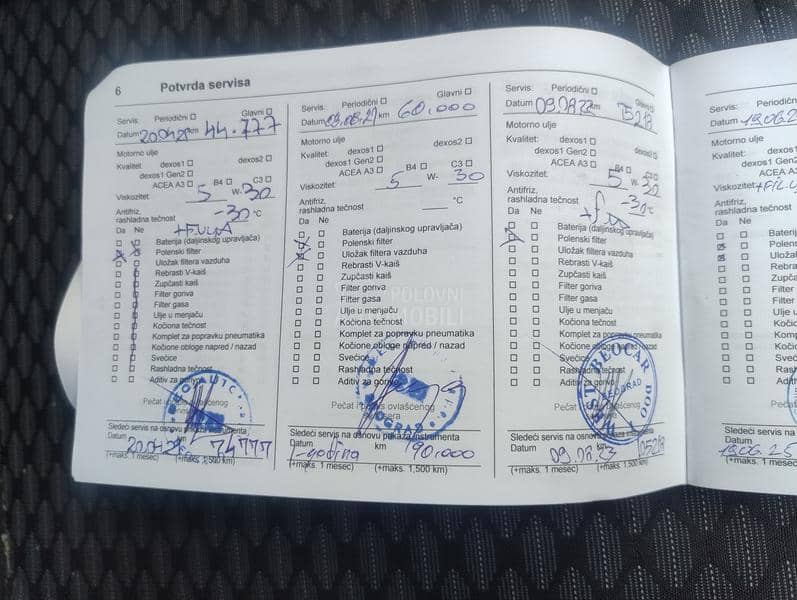 6 Potvrda servisa
Servis: Periodični Glavni
Datum 20.04.21 km 44.777
Motorno ulje
Kvalitet: dexos1 dexos2
dexos1 Gen2
ACEA A3 B4 C3
Viskozitet: 5 W- 30
Antifriz,
rashladna tečnost -30 °C
Da Ne
Baterija (daljinskog upravljača)
Polenski filter
Uložak filtera vazduha
Rebrasti V-kaiš
Zupčasti kaiš
Filter goriva
Filter gasa
Ulje u menjaču
Kočiona tečnost
Komplet za popravku pneumatika
Kočione obloge napred / nazad
Svećice
Rashladna tečnost
Aditiv za gorivo
Pečat i potpis ovlašćenog
servisera
Sledeći servis na osnovu pokaza instrumenta
Datum km
20.04.22 74777
(+maks. 1 mesec) (+maks. 1,500 km)
Servis: Periodični Glavni
Datum 03.08.21 km 60.000
Motorno ulje
Kvalitet: dexos1 dexos2
dexos1 Gen2
ACEA A3 B4 C3
Viskozitet: 5 W- 30
Antifriz,
rashladna tečnost °C
Da Ne
Baterija (daljinskog upravljača)
Polenski filter
Uložak filtera vazduha
Rebrasti V-kaiš
Zupčasti kaiš
Filter goriva
Filter gasa
Ulje u menjaču
Kočiona tečnost
Komplet za popravku pneumatika
Kočione obloge napred / nazad
Svećice
Rashladna tečnost
Aditiv za gorivo
BEOGRAD
Sledeći servis na osnovu pokaza instrumenta
Datum km
1-godina 90.000
(+maks. 1 mesec) (+maks. 1,500 km)
Servis: Periodični Glavni
Datum 09.08.22 km 75218
Motorno ulje
Kvalitet: dexos1 dexos2
dexos1 Gen2
ACEA A3 B4 C3
Viskozitet: 5 W- 30
Antifriz,
rashladna tečnost -30 °C
Da Ne
Baterija (daljinskog upravljača)
Polenski filter
Uložak filtera vazduha
Rebrasti V-kaiš
Zupčasti kaiš
Filter goriva
Filter gasa
Ulje u menjaču
Kočiona tečnost
Komplet za popravku pneumatika
Kočione obloge napred / nazad
Svećice
Rashladna tečnost
Aditiv za gorivo
WEST BEOCAR DOO
BEOGRAD
Datum km
09.08.23
(+maks. 1 mesec) (+maks. 1,500 km)
POLOVNI
Servis:
Datum 19.06.2
Motorno ulje
Kvalitet: dexos1
dexos1 Gen2
ACEA A3
Viskozitet:
Antifriz,
rashladna tečnost
Da Ne
Sledeći servis na
Datum
19.06.25
(+maks. 1 mesec)